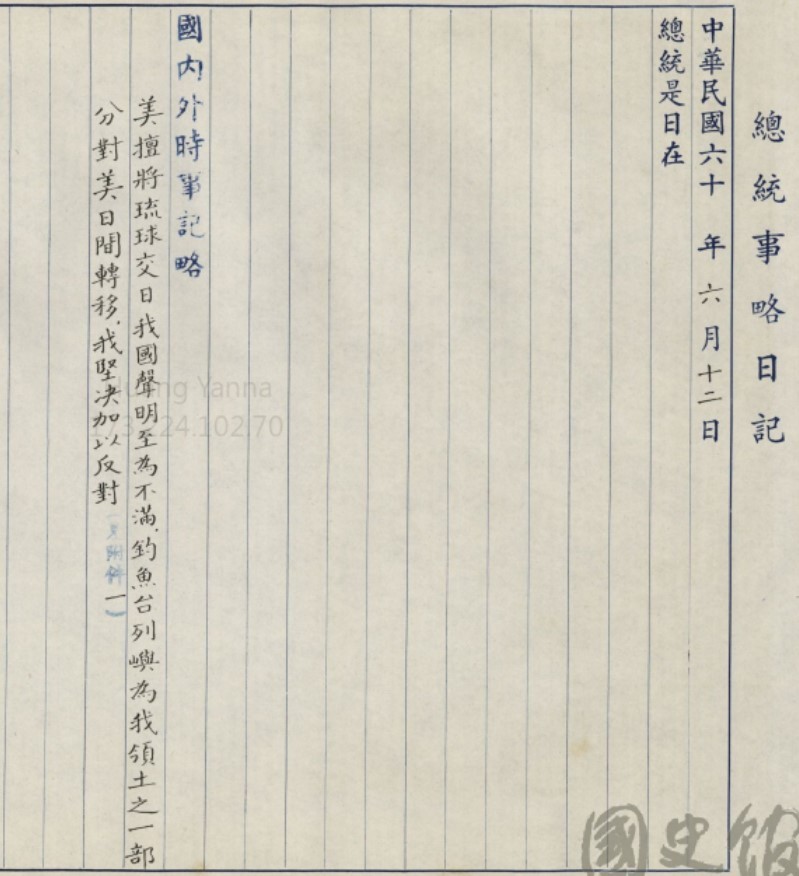 總統事略日記
中華民國六十年六月十二日
總統是日在
國內外時事記略
美擅將琉球交日我國聲明至為不滿，釣魚台列嶼為我領土之一部
分對美日間轉移，我堅决加以反對（見附件一）
Huang Yanna
國史館